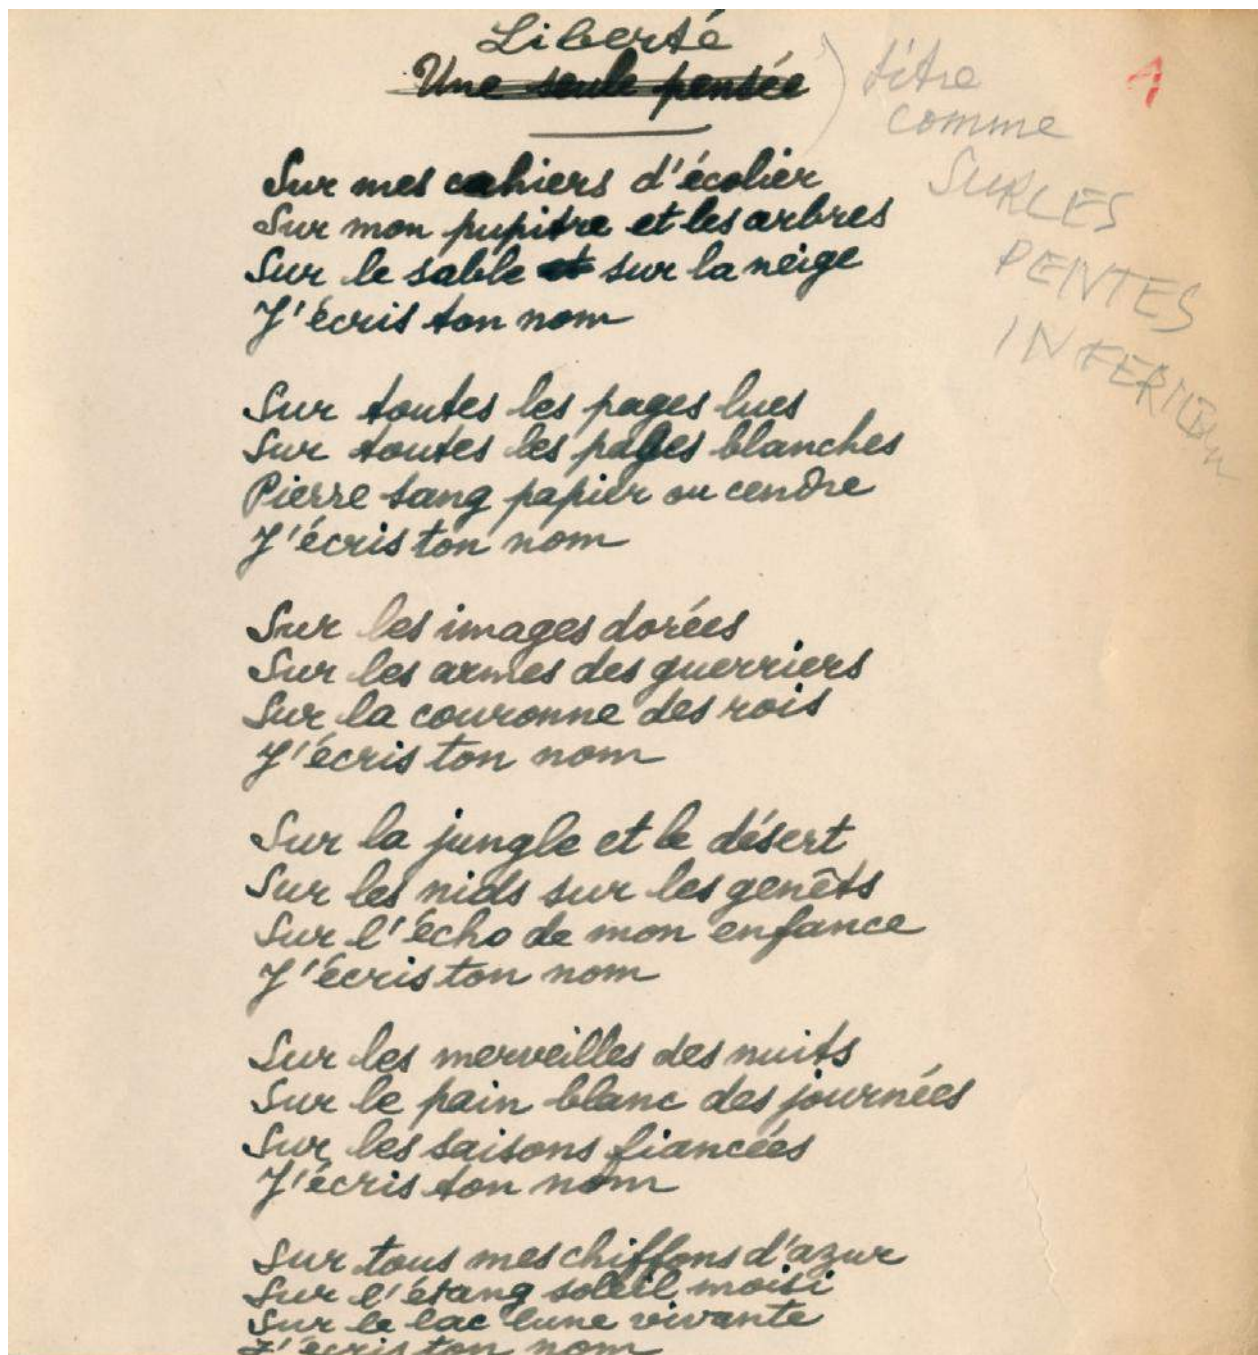 Liberté
Une seule pensée
titre
comme
SUR LES
PENTES
INFERIEURES
1
Sur mes cahiers d'écolier
Sur mon pupitre et les arbres
Sur le sable et sur la neige
J'écris ton nom
Sur toutes les pages lues
Sur toutes les pages blanches
Pierre sang papier ou cendre
J'écris ton nom
Sur les images dorées
Sur les armes des guerriers
Sur la couronne des rois
J'écris ton nom
Sur la jungle et le désert
Sur les nids sur les genêts
Sur l'écho de mon enfance
J'écris ton nom
Sur les merveilles des nuits
Sur le pain blanc des journées
Sur les saisons fiancées
J'écris ton nom
Sur tous mes chiffons d'azur
Sur l'étang soleil moisi
Sur le lac lune vivante
J'écris ton nom